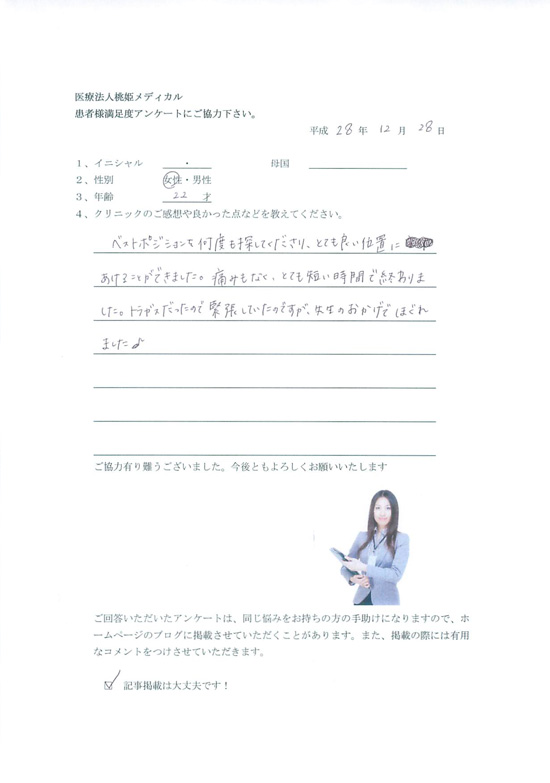 医療法人桃姫メディカル
患者様満足度アンケートにご協力下さい。
平成 28 年 12 月 28 日
1、イニシャル ・ 母国
2、性別 女性・男性
3、年齢 22 才
4、クリニックのご感想や良かった点などを教えてください。
ベストポジションを何度も探してくださり、とても良い位置に
あけることができました。痛みもなく、とても短い時間で終わりま
した。トラガスだったので緊張していたのですが、先生のおかげでほぐれ
ました♪
ご協力有り難うございました。今後ともよろしくお願いいたします
ご回答いただいたアンケートは、同じ悩みをお持ちの方の手助けになりますので、ホ
ームページのブログに掲載させていただくことがあります。また、掲載の際には有用
なコメントをつけさせていただきます。
☑ 記事掲載は大丈夫です！